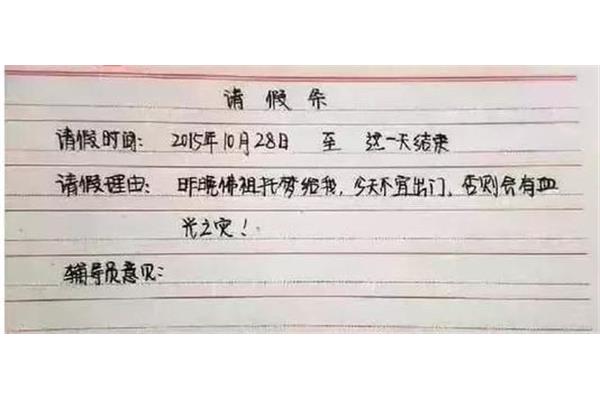 请假条
请假时间: 2015年10月28日 至 这一天结束
请假理由: 昨晚佛祖托梦给我,今天不宜出门,否则会有血
光之灾!
辅导员意见: